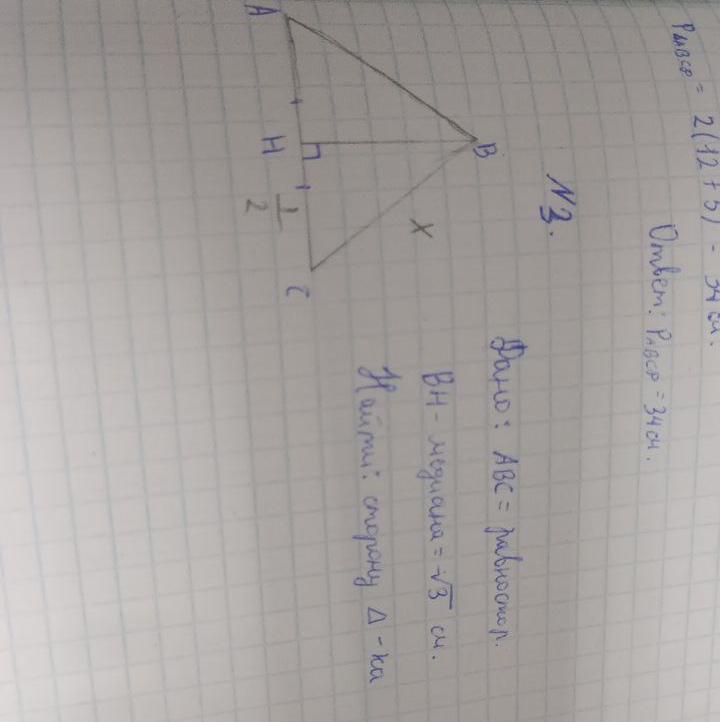 P_ABCD = 2(12 + 5) = 34 см.
Ответ: P_ABCD = 34 см.
№3.
A
B
H
C
x
1/2
Дано: ABC = равностор.
BH - медиана = √3 см.
Найти: сторону Δ-ка